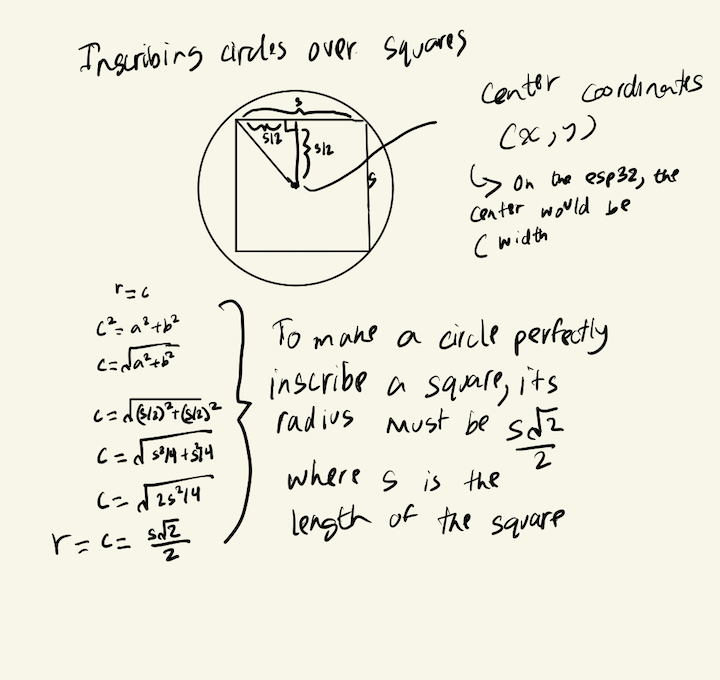 Inscribing circles over squares
s
s/2
s/2
s
center coordinates
(x, y)
↳ On the esp32, the
center would be
( width
r=c
c²= a²+b²
c=√a²+b²
c=√(s/2)²+(s/2)²
c=√s²/4+s²/4
c=√2s²/4
r=c= s√2/2
To make a circle perfectly
inscribe a square, its
radius must be s√2/2
where s is the
length of the square